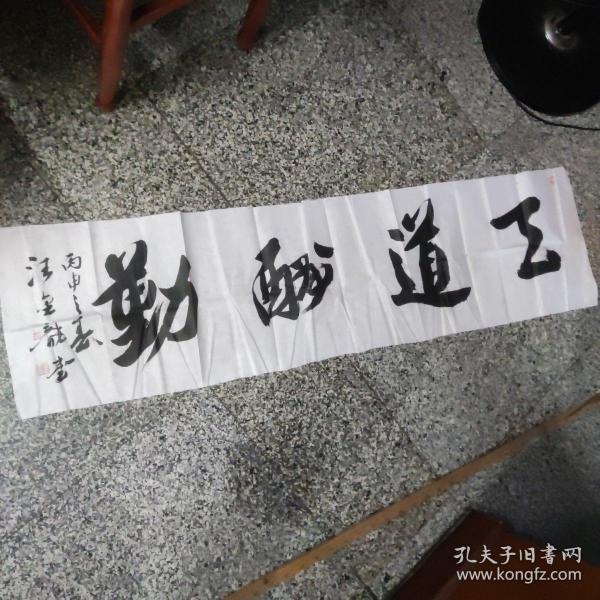 天道酬勤
丙申之春
汪金龙书
孔夫子旧書网
www.kongfz.com